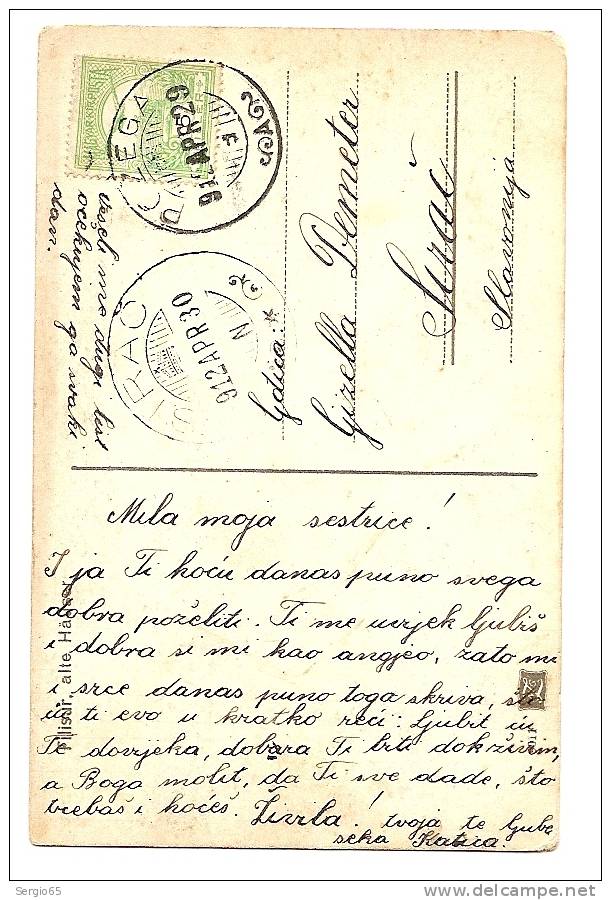 POŽEGA
912 APR 29
SIRAČ
912 APR 30
N
Gdica:
Gizella Demeter
Sirač
Slavonija
Veseli me dugi list
očekujem ga svaki
dan.
Mila moja sestrice!
I ja Ti hoću danas puno svega
dobra poželiti. Ti me uvjek ljubiš
i dobra si mi kao angjeo, zato mi
i srce danas puno toga skriva, što
ću ti evo u kratko reći: Ljubit ću
Te dovjeka, dobra Ti biti dok živim,
a Boga molit, da Ti sve dade, što
trebaš i hoćeš. Živila! tvoja te ljubeća
seka Katica.
Filisur, alte Häuser
Sergio65
www.delcampe.net